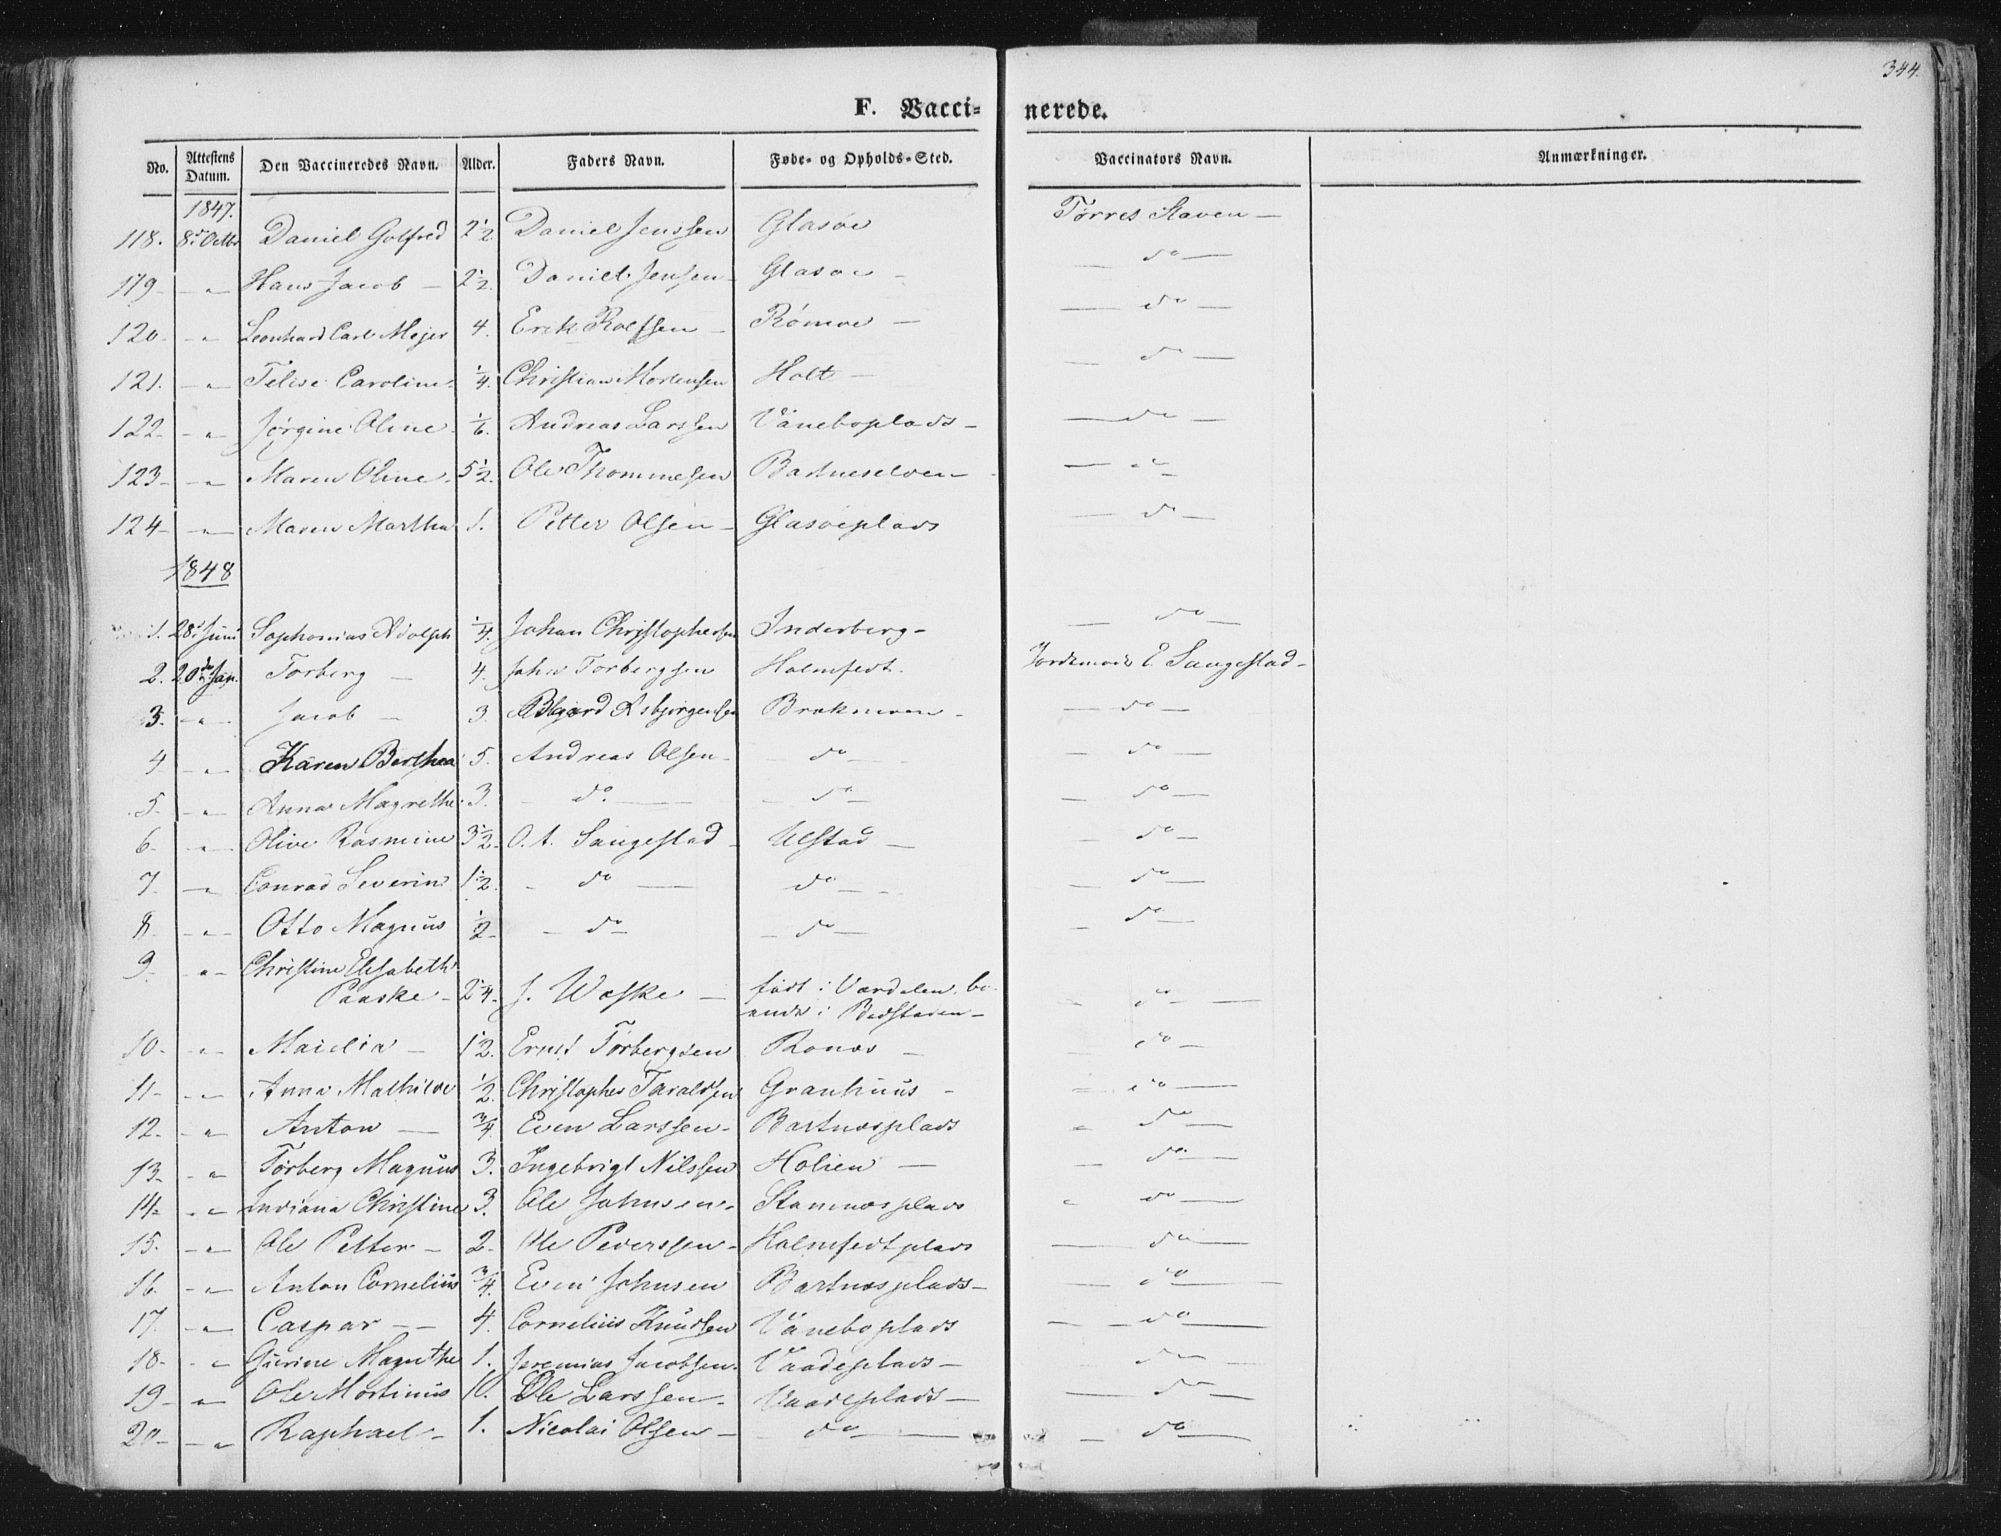 344.
F. Vacci- nerede.
No. Attestens Datum. Den Vaccineredes Navn. Alder. Faders Navn. Føde- og Opholds-Sted. Vaccinators Navn. Anmærkninger.
1847.
118. 8de Octbr Daniel Golfred 2 1/2. Daniel Jenssen Glasøe Tørres Staven —
119 - " - Hans Jacob — 2 1/2. Daniel Jensen — Glasøe - — do —
120 - " Leonhard Carl Mejer 4. Erik Rolfsen — Rømoe — — do —
121. - " Felise Caroline 1/4. Christian Mortensen Holt — — do —
122 - " Jørgine Oline 1/6. Andreas Larssen Väneboplads — — do —
123 - " Maren Oline 5 1/2. Ole Thommesen Bartneselven — — do —
124 - " - Maren Martha 1. Petter Olsen — Glasøeplads — do —
1848
1. 28de Juni Sophonias Adolph 1/4. Johan Christophersen Inderberg - — do —
2. 20de Jan. Torberg — 4. John Torbergsen Holmfedt. Jordemoder E Saugestad -
3. - " - Jacob — 3. Asbjørgensen Brakmoen - — do —
4 - " - Karen Berthea 5. Andreas Olsen - do — — do —
5. - " - Anna Magrethe 3. - do — — do — — do —
6. - " - Olive Rasmine 3 1/2. O. A. Saugestad - Ulstad — — do —
7. - " Conrad Severin 1 1/2. - do — do — - — do —
8. - " - Otto Magnus 1/2 - do — - do — - do —
9. - " - Christine Elisabeth
Paaske - 2 1/4. J. Wæske — født i Værdalen, bo-
ende i Bedstaden — - do —
10 - " - Maidlia — 1 1/2. Ernst Torbergsen Ronæs — - do —
11 - " - Anna Mathilde 1/2. Christopher Taraldsen Granhuus - - do —
12. - " Anton — 3/4 Even Larssen - Bartnesplads - do —
13 - " Torberg Magnus 3. Ingebrigt Nilssen Holien — — do —
14 - " - Indiana Christine 3. Ole Johnsen - Stamnesplads " do —
15. - " - Ole Petter - 2. Ole Pederssen - Holmfedtplads — do —
16. - " Anton Cornelius 3/4. Even Johnsen Bartnesplads — — do —
17. - " Caspar — — 4. Cornelius Knudsen Väneboplads — do —
18 - " Gurine Magrethe 1. Jeremias Jacobsen. Vaadesplads — do —
19 " Ole Mortinus 10. Ole Larssen - Vaadesplads — — do —
20 - - " Raphael - 1. Nicolai Olsen — - do — — do —